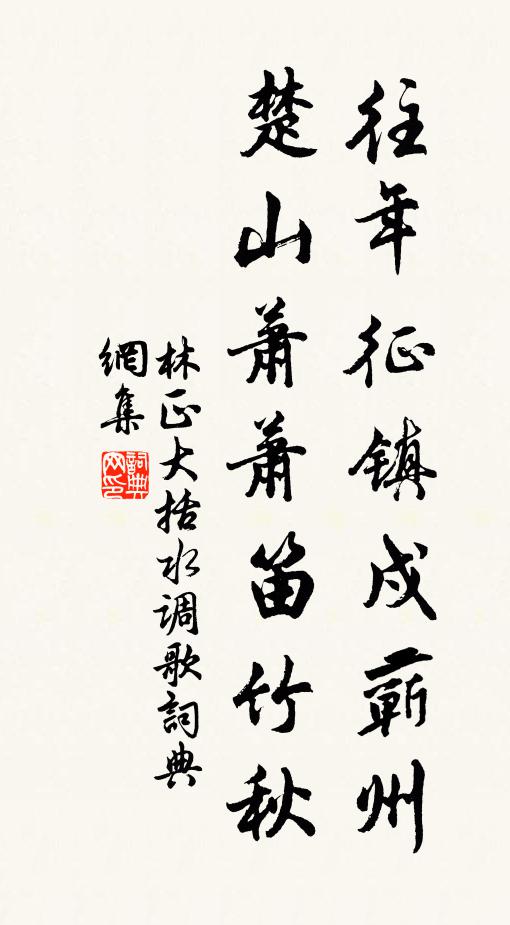 往年征镇戍蕲州
楚山萧萧笛竹秋
林正大括水调歌詞典
網集
詞典
网印